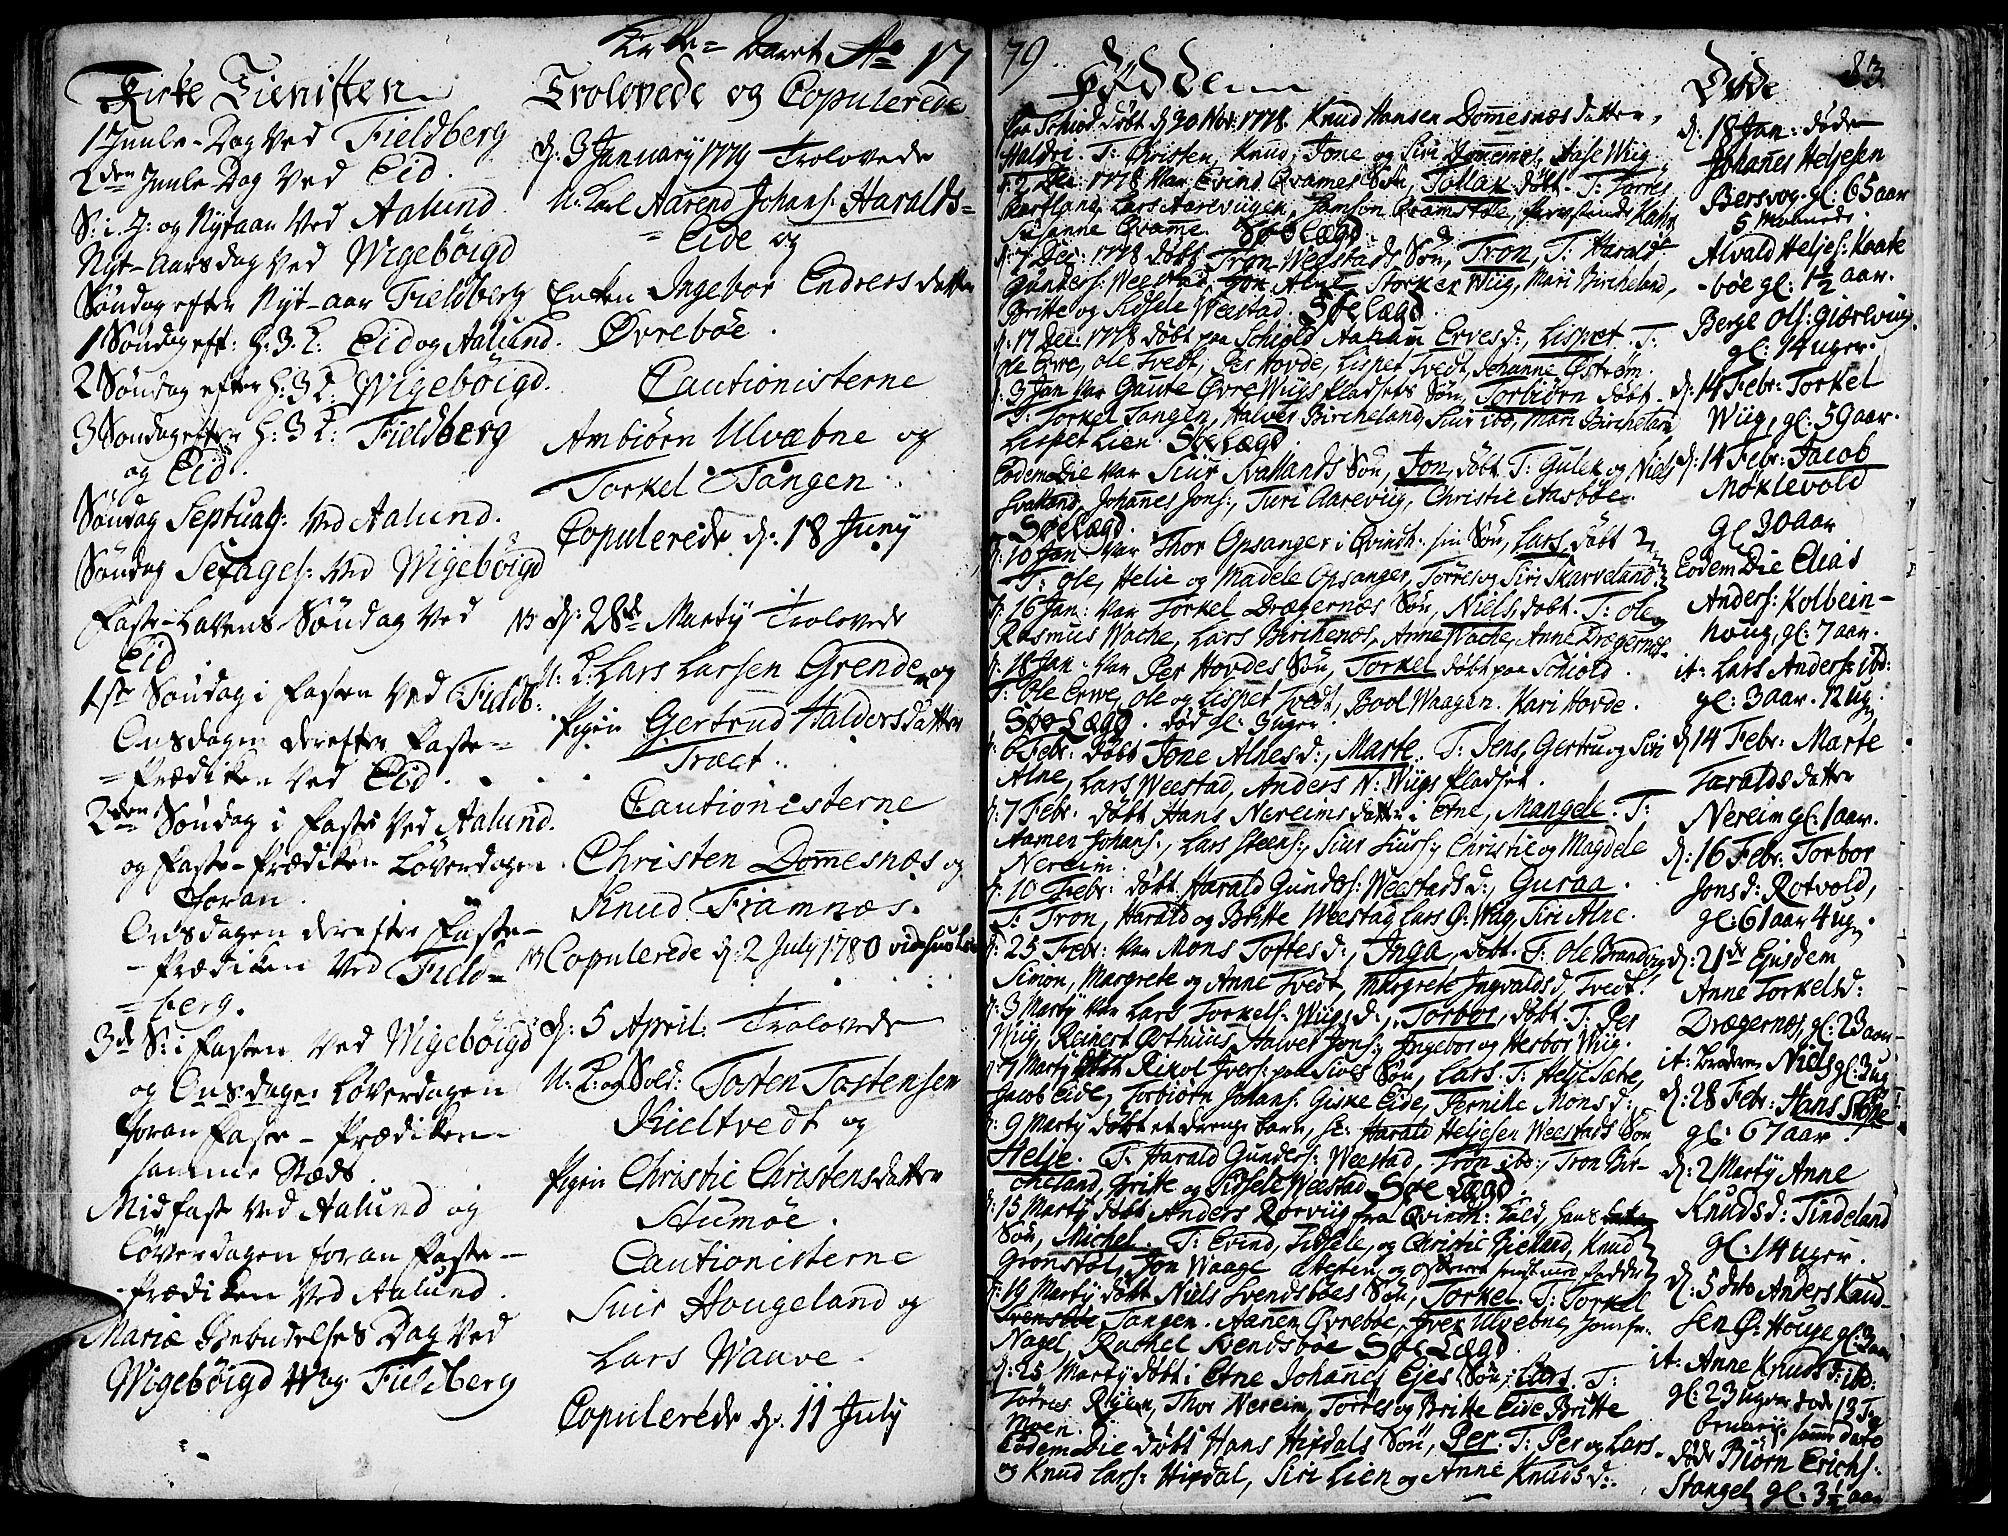 Kirke-Aaret Ao 1779.
83
Kirke Tienisten
1 Juule-Dag Ved Fieldberg
2den Juule Dag Ved Eid.
S: i J: og Nytaar Ved Aalund
Nyt-Aarsdag Ved Wigebøigd
Søndag efter Nyt-aar Fieldberg
1 Søndag eft: H: 3 K: Eid og Aalund.
2 Søndag efter H: 3 K: Wigebøigd.
3 Søndag efter H: 3 K: Fieldberg
og Eid.
Søndag Septuag: Ved Aalund.
Søndag Sexages: Ved Wigebøigd
Faste-Lavens Søndag Ved
Eid
1ste Søndag i Fasten Ved Fieldb:
Onsdagen derefter Faste-
-Prædiken Ved Eid.
2den Søndag i Faste Ved Aalund.
og Faste-Prædiken Løverdagen
foran.
Onsdagen derefter Faste-
-Prædiken Ved Field-
-berg.
3de S: i Fasten Ved Wigebøigd
og Onsdagen Løverdagen
foran Faste-Prædiken
samme Stæds
Midfaste Ved Aalund og
Løverdagen foran Faste-
-Prædiken Ved Aalund.
Mariæ Bebudelses Dag Ved
Wigebøigd og Fieldberg
Trolovede og Copulerede
d: 3 January 1779 Trolovede
U: Karl Aarend Johans: Haralds-
-Eide og
Enken Ingebor Endersdatter
Øvrebøe.
Cautionisterne
Ambiørn Ulvæbne og
Torkel Tangen.
Copulerede d: 18 Juny
NB d: 28de Marty Trolovede
U: K: Lars Larsen Grende og
Pigen Gertrud Haldorsdatter
Træet.
Cautionisterne
Christen Domesnæs og
Knud Framnæs.
NB Copulerede d: 2 July 1780
d: 5 April: Trolovede
U: K: og Sold: Tosten Tostensen
Kieltvedt og
Pigen Christie Christensdatter
Stumøe.
Cautionisterne
Siur Hougeland og
Lars Waave.
Copulerede d: 11 July
Fødde
paa Schiold døbt d: 30 Nov: 1778 Knud Hansen Domesnæs datter,
Haldri. T: Christen, Knud, Jone og Siri Domesnes, Aase Wiig
d: 2 Dec: 1778 Var Evind Qvames Søn, Tollak døbt. T: Torres
Susanne Qvame. Søe Lægd
d: 7 Dec: 1778 døbt Tron Weestads Søn, Tron, T: Harald
Gunders: Weestad, Jon Alne, Storker Wiig, Mari Bircheland,
Britte og Sidsele Weestad. Søe Lægd
d: 17 Dec: 1778 døbt paa Schiold Aanen Erves d:, Lispet. T:
Ole Erve, Ole Tvedt, Per Hovde, Lispet Tvedt, Johanne Østrøm.
d: 3 Jan Var Gaute Øvre Wiigs Pladsets Søn, Torbiørn døbt.
T: Torkel Tangen, Halver Bircheland, Siur ibd, Mari Bircheland
Lispet Lien. Søe Lægd
Eodem Die Var Siur Svallands Søn, Jon, døbt T: Gulek og Niels
Svalland, Johannes Jons:, Turi Aarevig, Christie Aasbøe.
Søe Lægd
d: 10 Jan Var Thor Opsanger i Qvindh: sin Søn, Lars døbt
T: Ole, Helje og Madele Opsanger, Torres og Siri Skarveland
d: 16 Jan: Var Torkel Drægernæs Søn, Niels, døbt. T: Ole og
Rasmus Wache, Lars Birchenæs, Anne Wache, Anne Drægernæs.
d: 18 Jan: Var Per Hovdes Søn, Torkel døbt paa Schiold.
T: Ole Erve, Ole og Lispet Tvedt, Bool Waagen. Kari Hovde.
Søe Lægd. død gl: 3 uger
d: 6 Febr: døbt Tone Alnes d:, Marte. T: Jens, Gertru og Siri
Alne, Lars Weestad, Anders N: Wiigs Pladset.
d: 7 Febr: døbt Hans Nereims datter i Etne, Mangele. T:
Aamen Johans:, Lars Steens:, Siur Siurs:, Christie og Magdele
Nereim.
d: 10 Febr: døbt Harald Gunders: Weestads d:, Guraa.
T: Tron, Harald og Britte Weestad, Lars Ø: Wiig, Siri Alne.
d: 25 Febr: Var Mons Toftes d:, Inga, døbt. T: Ole Brandvig
Simon, Margrete og Anne Tvedt, Margrete Ingvaldsd. Tvedt.
d: 3 Marty Var Lars Torkels: Wiigs d:, Torbor, døbt T: Per
Wiig, Reinert Østhuus, Halver Jons:, Ingebor og Herbor Wiig.
d: 7 Marty døbt Rikol Ivers: paa Sives Søn, Lars. T: Helje Sætre,
Jacob Eide, Torbiørn Johans: Giske Eide, Pernike Monsd:
d: 9 Marty døbt et drenge barn, Harald Heljesen Weestads Søn
Helje. T: Harald Gunders: Weestad, Tron ibd:, Tron Bir-
cheland, Britte og Sidsele Weestad. Søe Lægd
d: 15 Marty døbt Anders Rørviig fra Qvindh:
Søn, Michel. T: Evind, Sidsele, og Christie Rieland, Knud
Grønstøl, Jon Waage
d: 19 Marty døbt Niels Svendsbøes Søn, Torkel. T: Torkel
Tangen. Aanen Øvrebøe, Iver Ulvebne, Jomfr:
Nagel, Rachel Svendsbøe Søe Lægd
d: 25 Marty døbt i Etne Johannes Ejes Søn, Lars. T:
Torres Rygen, Thor Nereim, Torres og Britte Eide Britte
Moen.
Eodem Die døbt Hans Hisdals Søn, Per. T: Per og Lars
og Knud Lars: Hisdal, Siri Lien og Anne Knudsd:
Døde
d: 18 Jan: døde
Johanes Heljesen
Bersvog gl: 65 aar
5 Maaneder.
Alvald Heljes: Kaate
-bøe gl: 1½ aar.
Berge Ols: Giærevig,
gl: 14 uger.
d: 14 Febr: Torkel
Wiig, gl: 59 aar.
d: 14 Febr: Jacob
Møklevold
gl: 30 aar
Eodem Die Elias
Anders: Kolbein-
houg, gl: 7 aar.
it: Lars Anders: ibd:
gl: 3 aar. 12 ug:
d: 14 Febr: Marte
Taralds datter
Nereim gl: 1 aar.
d: 16 Febr: Torbor
Jonsd: Rotvold,
gl: 61 aar 4 ug:
d: 21de Ejusdem
Anne Torkelsd:
Drægernæs, gl: 23 aar
it: Niels gl: 3 ug
d: 28 Febr: Hans Støle
gl: 67 aar.
d: 2 Marty Anne
Knudsd: Tindeland
gl: 14 uger.
d: 5 dito Anders Knud-
sen Ø: Houge gl: 3 aar
it: Anne Knudsd: ibd:
gl: 23 uger døde 13 Fe
bruarij. samme dato
døde Biørn Erichs:
Stangel, gl: 3½ aar